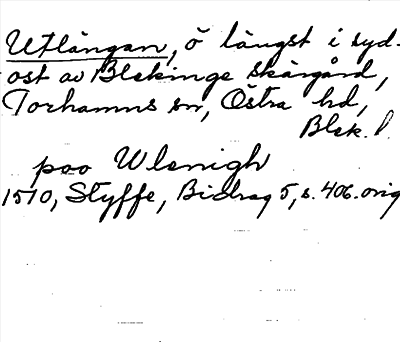 Utlängan, ö längst i syd-
ost av Blekinge skärgård,
Torhamns sn, Östra hd,
Blek. l.
poo Wlenigh
1510, Styffe, Bidrag 5, s. 406. orig